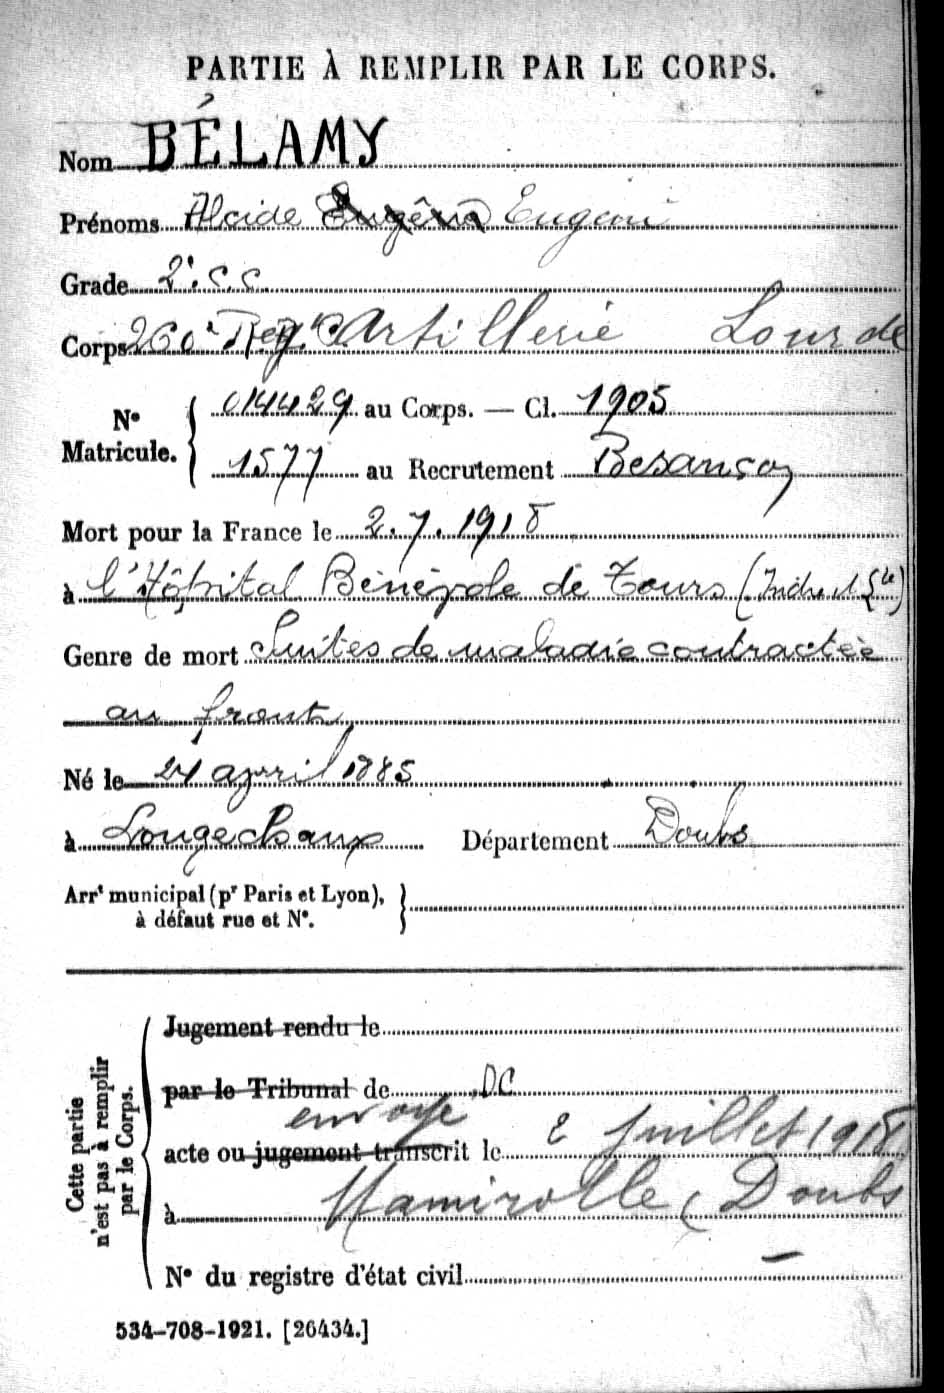 PARTIE À REMPLIR PAR LE CORPS.
Nom BÉLAMY
Prénoms Alcide Eugène Eugène
Grade 2e c. c.
Corps 260e Reg. Artillerie Lourde
No Matricule. 014429 au Corps. — Cl. 1905
1577 au Recrutement Besançon
Mort pour la France le 2.7.1918
à l'Hôpital Bénévole de Tours (Indre et Lre)
Genre de mort Suites de maladie contractée
au front
Né le 24 avril 1885
à Longechaux Département Doubs
Arrt municipal (pr Paris et Lyon),
à défaut rue et No.
Cette partie
n'est pas à remplir
par le Corps.
Jugement rendu le
par le Tribunal de DC
envoyé
acte ou jugement transcrit le 2 Juillet 1918
à Mamirolle (Doubs
No du registre d'état civil —
534-708-1921. [26434.]